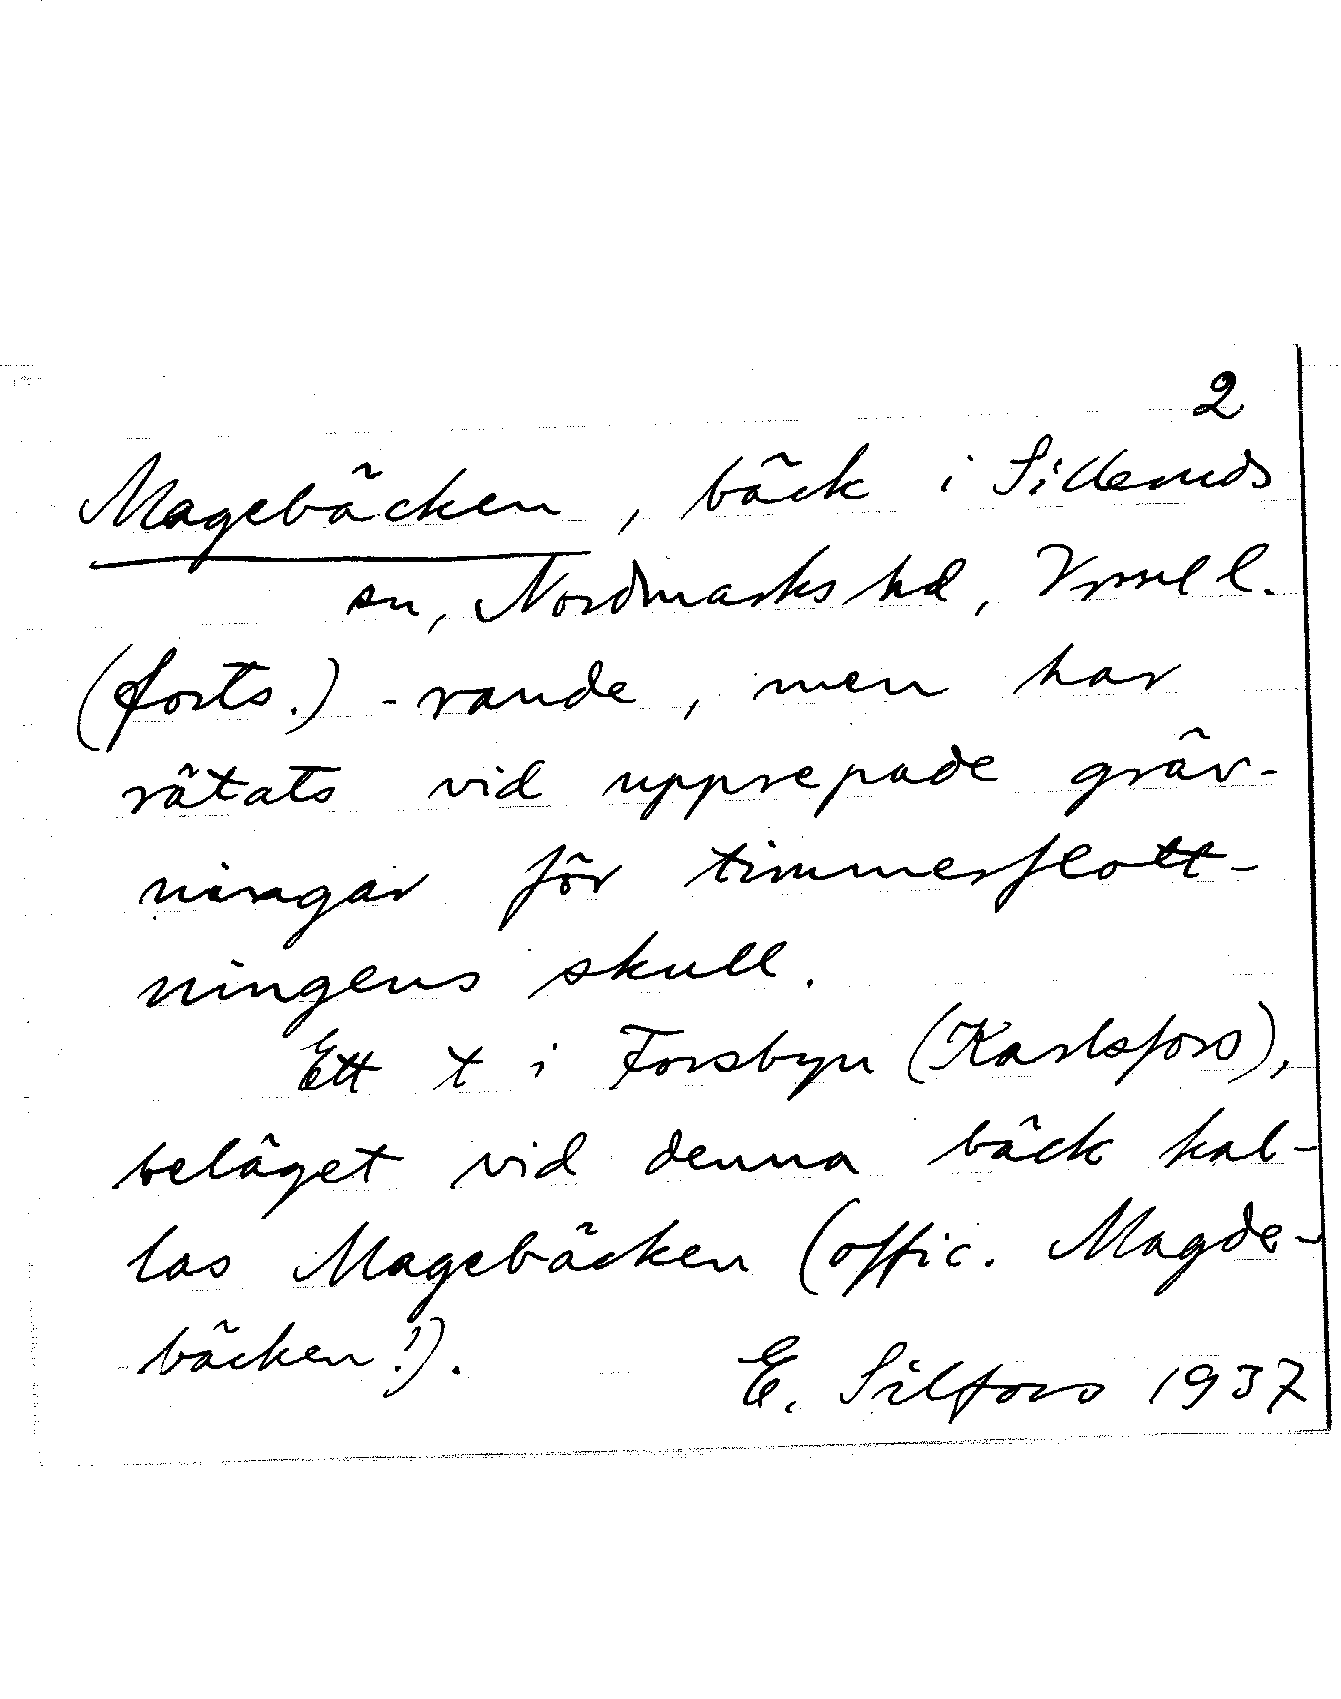 2
Magebäcken, bäck i Silleruds
sn, Nordmarks hd, Vrml l.
(forts.) -rande, men har
rätats vid upprepade gräv-
ningar för timmerflott-
ningens skull.
Ett t i Forsbyn (Karlsfors),
beläget vid denna bäck kal-
las Magebäcken (offic. Magde-
bäcken!).
E. Silfors 1937